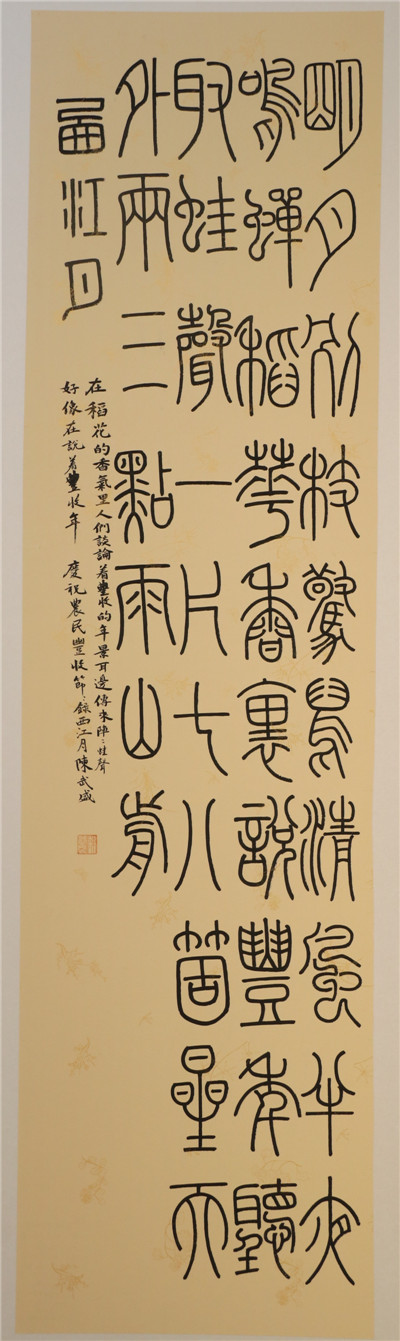 明月別枝驚舄清風半夜
鳴蟬稻華香裏說豐年聽
取蛙聲一片七八箇星天
外兩三點雨山前
西江月
在稻花的香氣里人們談論着豐收的年景耳邊傳來陣：蛙聲
好像在說着豐收年 慶祝農民豐收節：錄西江月陳武盛